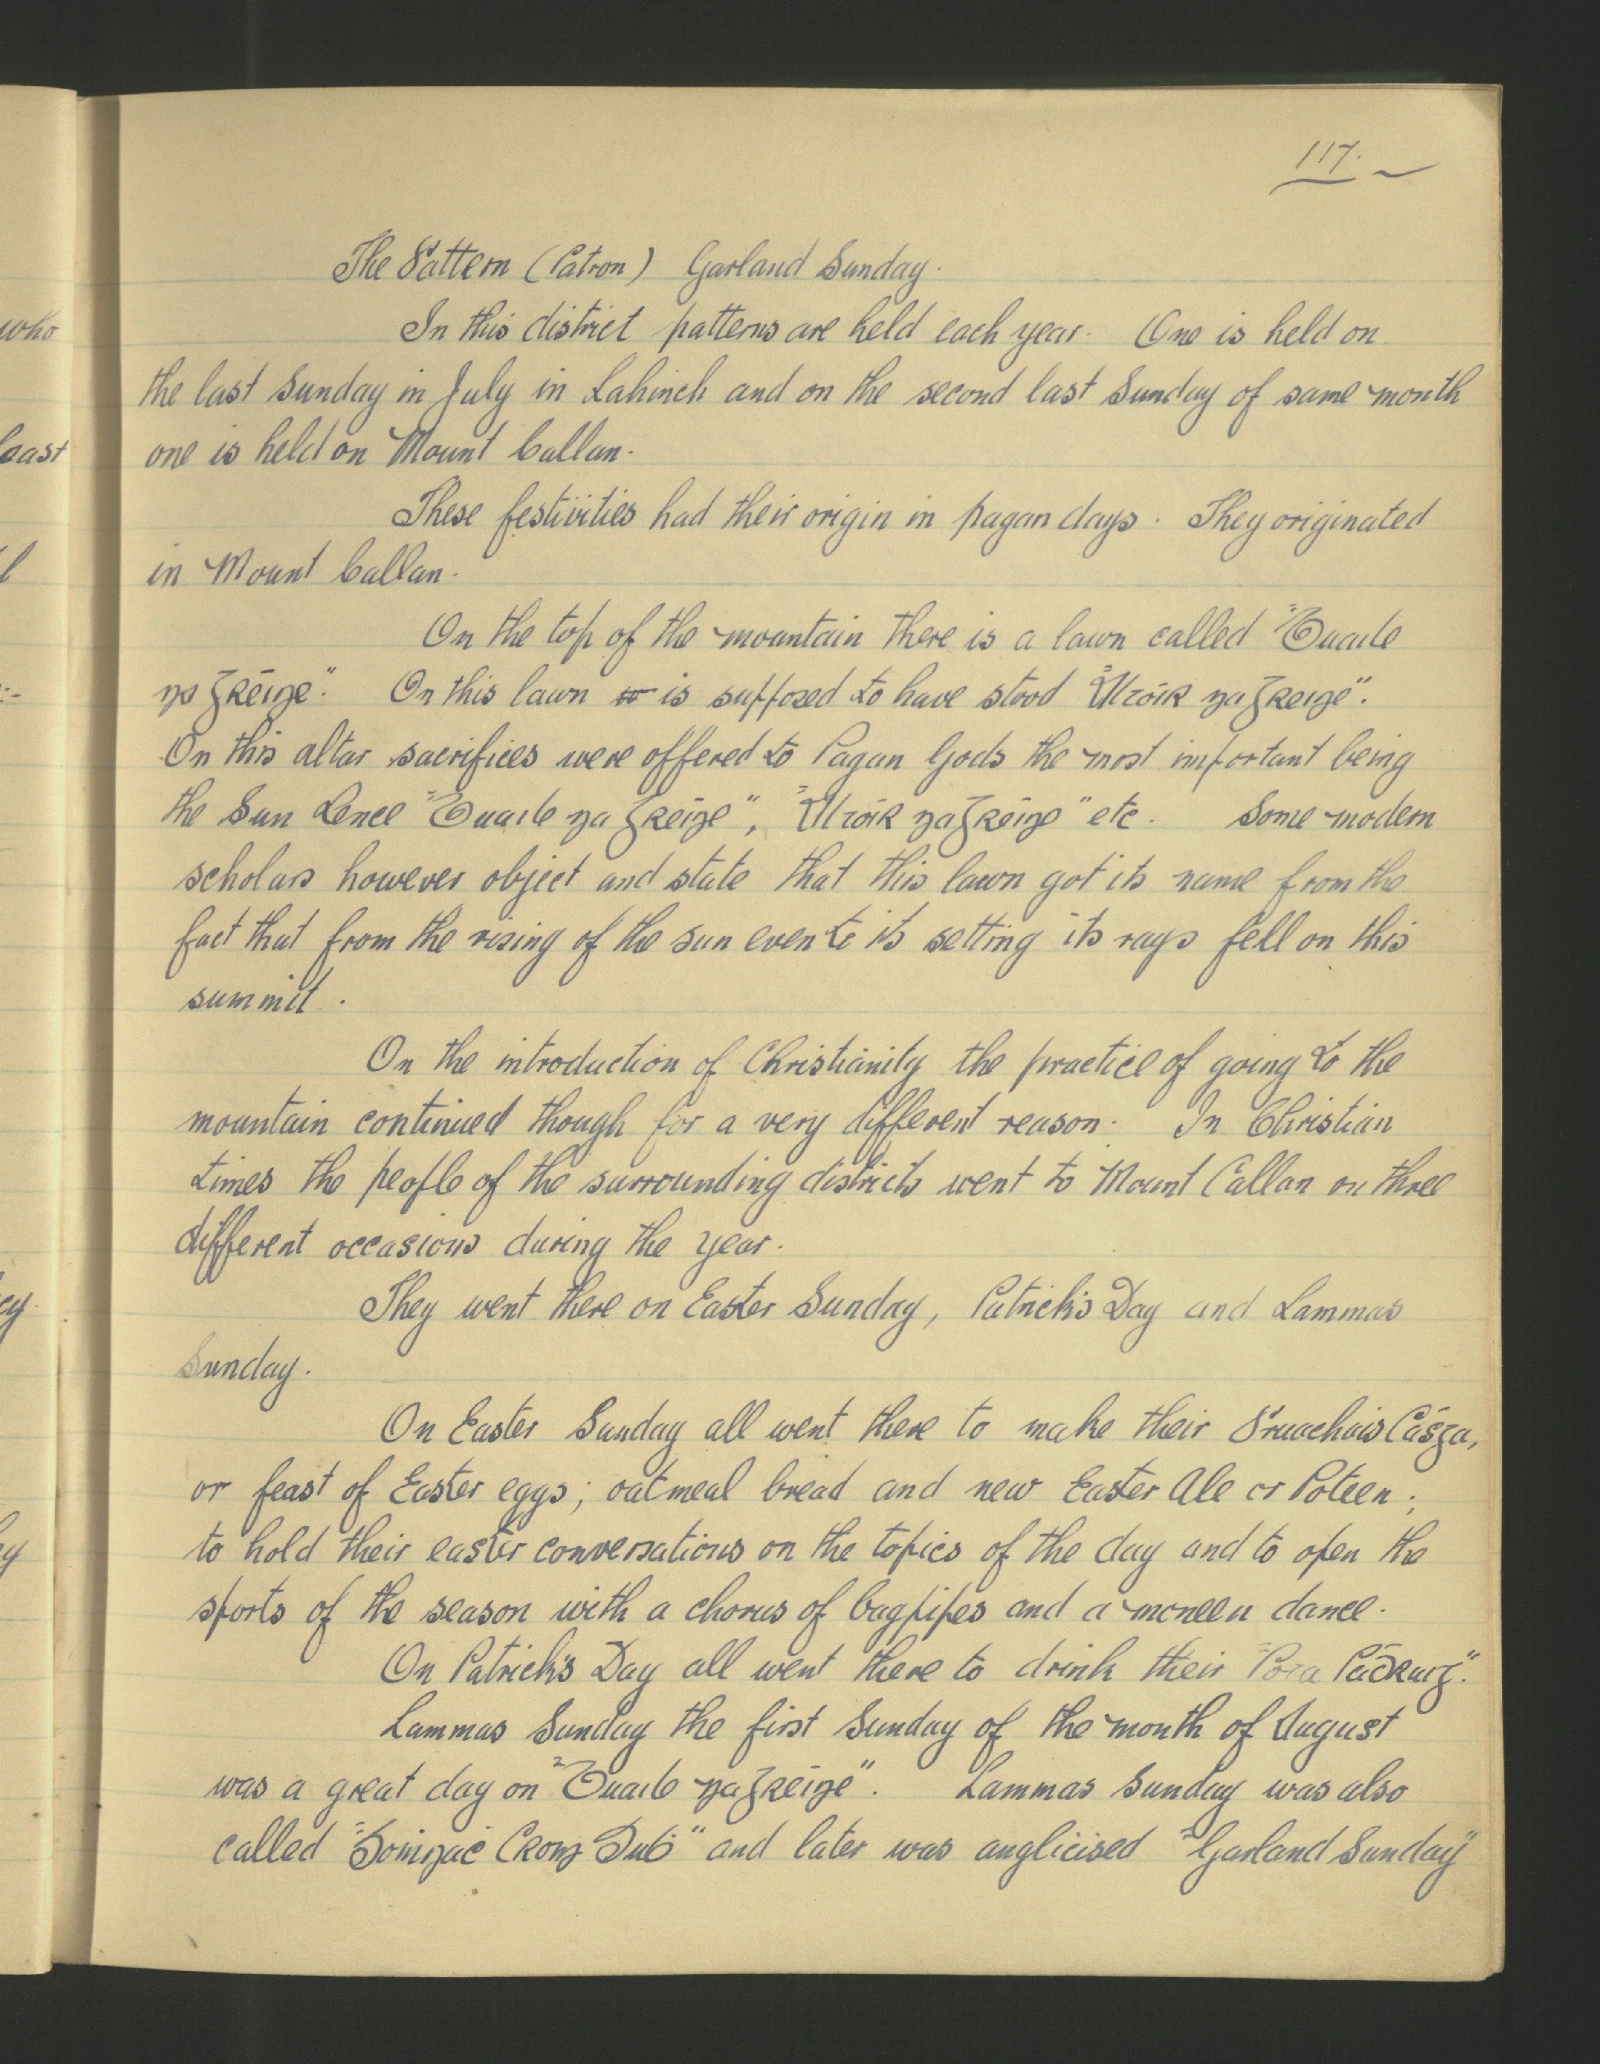 who
least
l
:-
ey.
ey
117.
The Pattern (Patron) Garland Sunday.
In this district patterns are held each year. One is held on
the last Sunday in July in Lahinch and on the second last Sunday of same month
one is held on Mount Callan.
These festivities had their origin in pagan days. They originated
in Mount Callan.
On the top of the mountain there is a lawn called "Buaile
na Gréine". On this lawn is supposed to have stood "Altóir na Greine".
On this altar sacrifices were offered to Pagan Gods the most important being
the Sun Lence "Buaile na Gréine", "Altóir na Gréine" etc. Some modern
scholars however object and state that this lawn got its name from the
fact that from the rising of the sun even to its setting its rays fell on this
summit.
On the introduction of Christianity the practice of going to the
mountain continued though for a very different reason. In Christian
times the people of the surrounding districts went to Mount Callan on three
different occasions during the year.
They went there on Easter Sunday, Patrick's Day and Lammas
Sunday.
On Easter Sunday all went there to make their Pruachais Cásga,
or feast of Easter eggs; oatmeal bread and new Easter Ale or Poteen;
to hold their easter conversations on the topics of the day and to open the
sports of the season with a chorus of bagpipes and a moneen dance.
On Patrick's Day all went there to drink their "Pota Pádraig".
Lammas Sunday the first Sunday of the month of August
was a great day on "Buaile na Gréine". Lammas Sunday was also
called "Domnac Crom Dub" and later was anglicised "Garland Sunday"